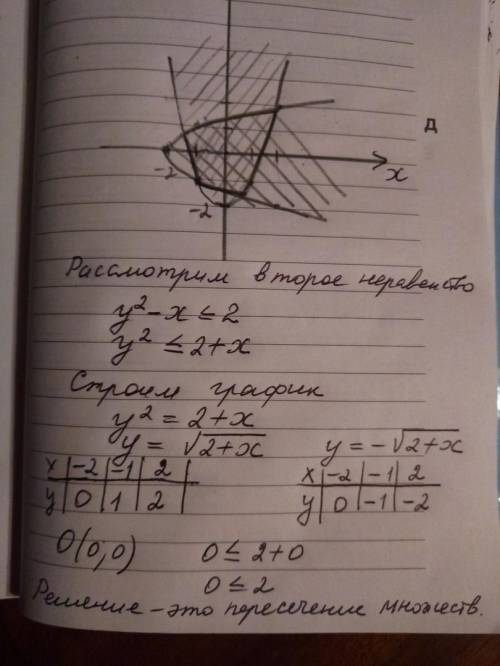 Д
x
-2
-2
Рассмотрим второе неравенство
y² - x ≤ 2
y² ≤ 2+x
Строим график
y² = 2+x
y = √2+x y = -√2+x
x | -2 | -1 | 2 | x | -2 | -1 | 2
y | 0 | 1 | 2 | y | 0 | -1 | -2
O(0,0) 0 ≤ 2+0
0 ≤ 2
Решение – это пересечение множеств.